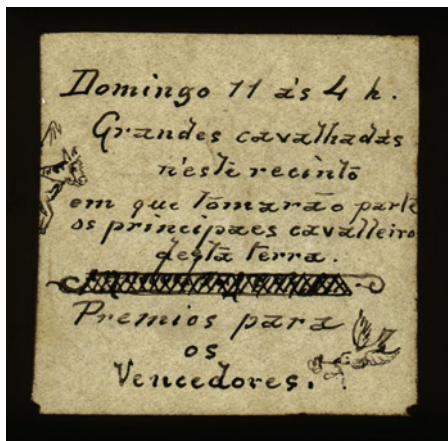 Domingo 11 ás 4 h.
Grandes cavalhadas
n'este recinto
em que tomarão parte
os principaes cavalleiro
desta terra.
Premios para
os
Vencedores.